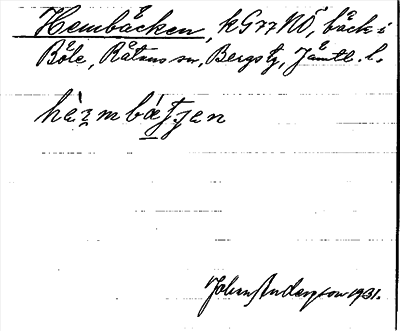 Hembäcken, kG77NÖ, bäck i
Böle, Rätans sn, Bergs tg, Jämtl. l.
hèzmbátjen
Johan Anderson 1931.